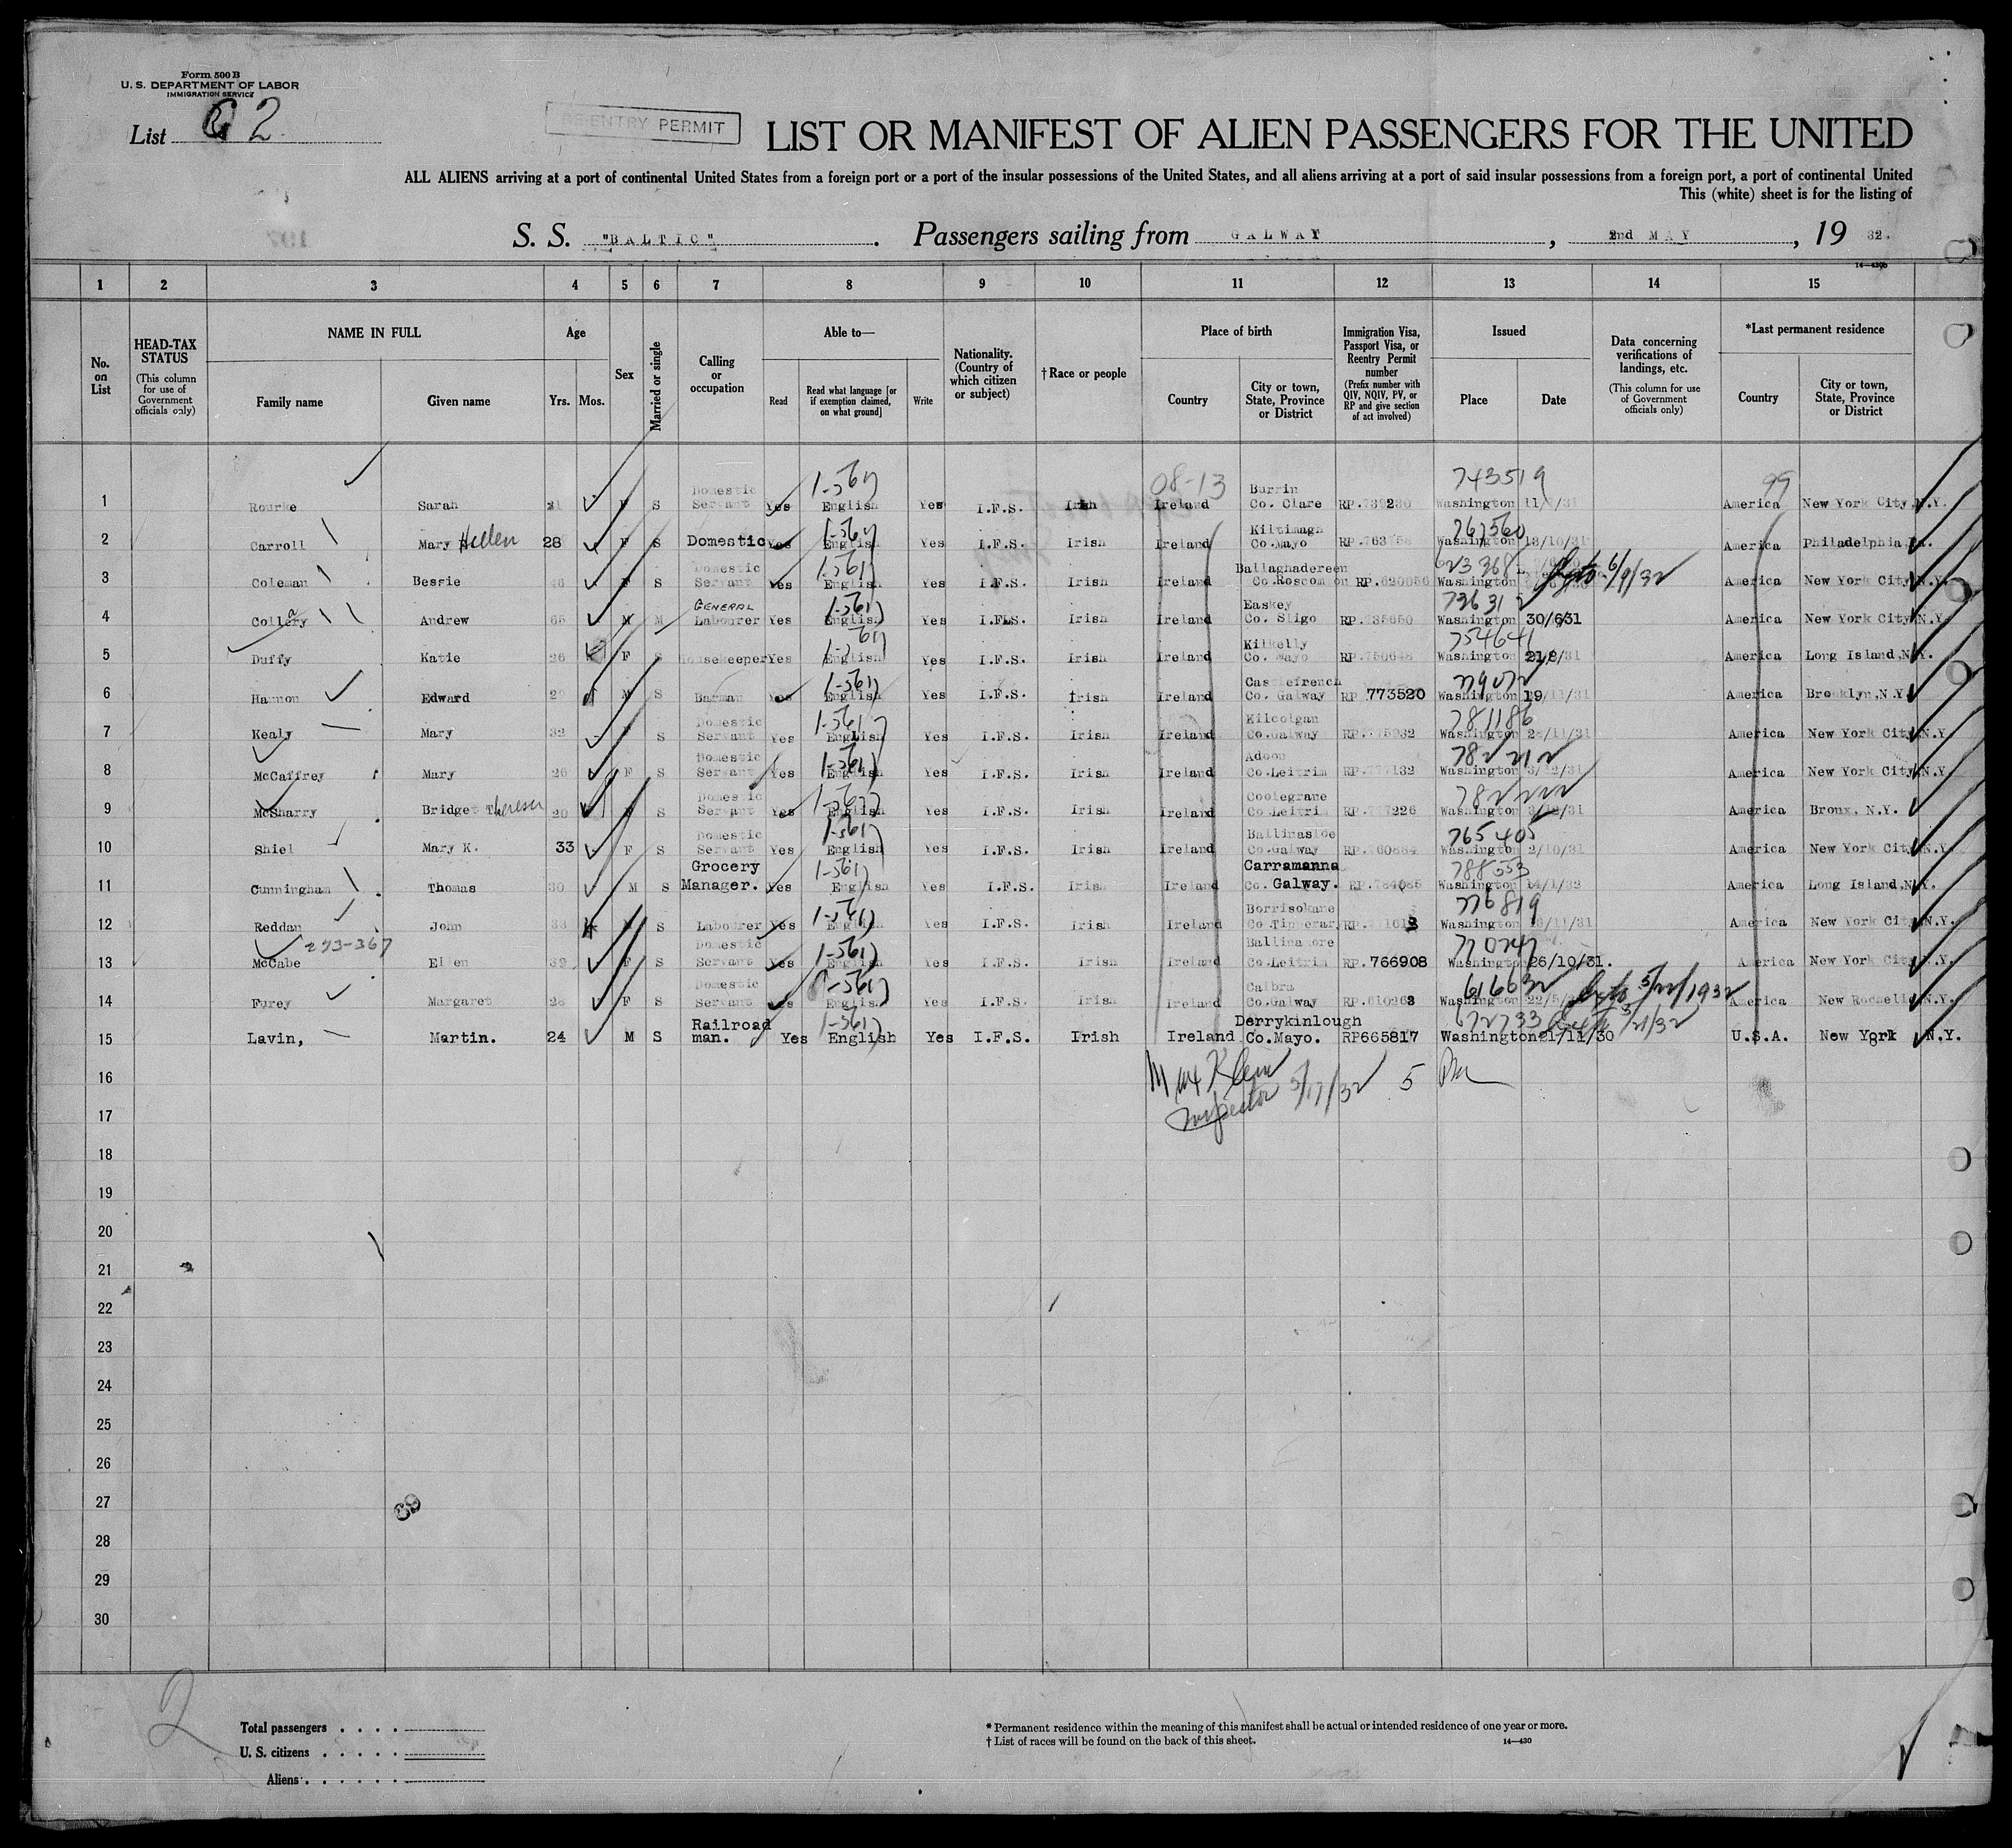 Form 500 B
U. S. DEPARTMENT OF LABOR
IMMIGRATION SERVICE
List 2
RE-ENTRY PERMIT
LIST OR MANIFEST OF ALIEN PASSENGERS FOR THE UNITED
ALL ALIENS arriving at a port of continental United States from a foreign port or a port of the insular possessions of the United States, and all aliens arriving at a port of said insular possessions from a foreign port, a port of continental United
This (white) sheet is for the listing of
S. S. "BALTIC". Passengers sailing from GALWAY, 2nd MAY, 19 32.
14—430b
1 2 3 4 5 6 7 8 9 10 11 12 13 14 15
No. on List
HEAD-TAX STATUS (This column for use of Government officials only)
NAME IN FULL Family name Given name
Age Yrs. Mos.
Sex
Married or single
Calling or occupation
Able to— Read Read what language [or if exemption claimed, on what ground] Write
Nationality. (Country of which citizen or subject)
†Race or people
Place of birth Country City or town, State, Province or District
Immigration Visa, Passport Visa, or Reentry Permit number (Prefix number with QIV, NQIV, PV, or RP and give section of act involved)
Issued Place Date
Data concerning verifications of landings, etc. (This column for use of Government officials only)
*Last permanent residence Country City or town, State, Province or District
08-13 743519 99
1 Rourke Sarah F S Domestic Servant Yes English Yes I.F.S. Irish Ireland Burrin Co. Clare Washington America New York City, N.Y.
767560
2 Carroll Mary Hellen 28 F S Domestic Yes English Yes I.F.S. Irish Ireland Kiltimagh Co.Mayo Washington 13/10/31 America Philadelphia, Pa.
623368
3 Coleman Bessie F S Domestic Servant Yes English Yes I.F.S. Irish Ireland Ballaghadereen Co.Roscommon Washington 6/9/32 America New York City, N.Y.
4 Collery Andrew 65 M M GENERAL Labourer Yes English Yes I.F.S. Irish Ireland Easkey Co. Sligo Washington 30/6/31 America New York City, N.Y.
754641
5 Duffy Katie 26 F S Housekeeper Yes English Yes I.F.S. Irish Ireland Kilkelly Co. Mayo Washington America Long Island, N.Y.
6 Hannon Edward M S Barman Yes English Yes I.F.S. Irish Ireland Castlefrench Co. Galway RP.773520 Washington 19/11/31 America Brooklyn, N.Y.
781186
7 Kealy Mary 32 F S Domestic Servant Yes English Yes I.F.S. Irish Ireland Kilcolgan Co.Galway Washington America New York City, N.Y.
8 McCaffrey Mary 26 F S Domestic Servant Yes English Yes I.F.S. Irish Ireland Adoon Co.Leitrim Washington America New York City, N.Y.
9 McSharry Bridget Theresa 20 F S Domestic Servant Yes English Yes I.F.S. Irish Ireland Coolegrane Co.Leitrim Washington America Bronx, N.Y.
765405
10 Shiel Mary K. 33 F S Domestic Servant Yes English Yes I.F.S. Irish Ireland Ballinasloe Co.Galway RP.760884 Washington 2/10/31 America New York City, N.Y.
788553
11 Cunningham Thomas 30 M S Grocery Manager. Yes English Yes I.F.S. Irish Ireland Carramanna Co. Galway. Washington 14/1/32 America Long Island, N.Y.
776819
12 Reddan John 33 M S Labourer Yes English Yes I.F.S. Irish Ireland Borrisokane Co.Tipperary Washington America New York City, N.Y.
273-367
13 McCabe Ellen 39 F S Domestic Servant Yes English Yes I.F.S. Irish Ireland Ballinamore Co.Leitrim RP.766908 Washington 26/10/31. America New York City, N.Y.
14 Furey Margaret 28 F S Domestic Servant Yes English Yes I.F.S. Irish Ireland Calbra Co.Galway RP.610263 Washington America New Rochelle N.Y.
15 Lavin, Martin. 24 M S Railroad man. Yes English Yes I.F.S. Irish Ireland Derrykinlough Co.Mayo. RP665817 Washington 21/11/30 U.S.A. New York N.Y.
16 Max Klein
Inspector 5/17/32
17
18
19
20
21
22
23
24
25
26
27
28
29
30
69
2
Total passengers
U. S. citizens
Aliens
* Permanent residence within the meaning of this manifest shall be actual or intended residence of one year or more.
† List of races will be found on the back of this sheet.
14—430